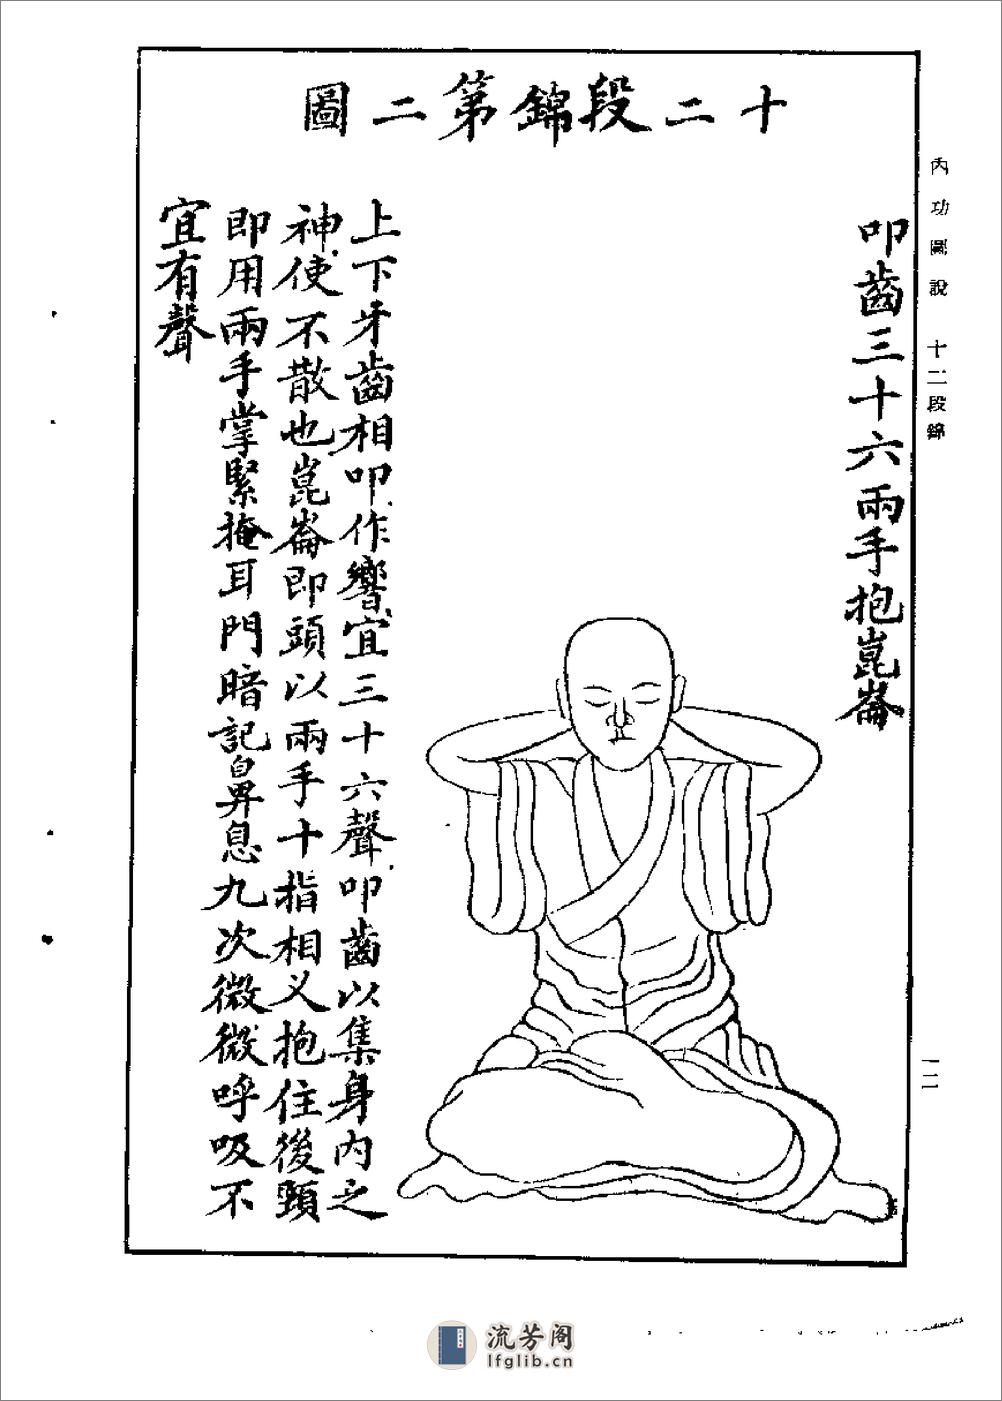 十二段錦第二圖
內功圖說 十二段錦
叩齒三十六兩手抱崑崙
上下牙齒相叩作響宜三十六聲叩齒以集身內之
神使不散也崑崙即頭以兩手十指相义抱住後頸
即用兩手掌緊掩耳門暗記鼻息九次微微呼吸不
宜有聲
流芳阁
lfglib.cn